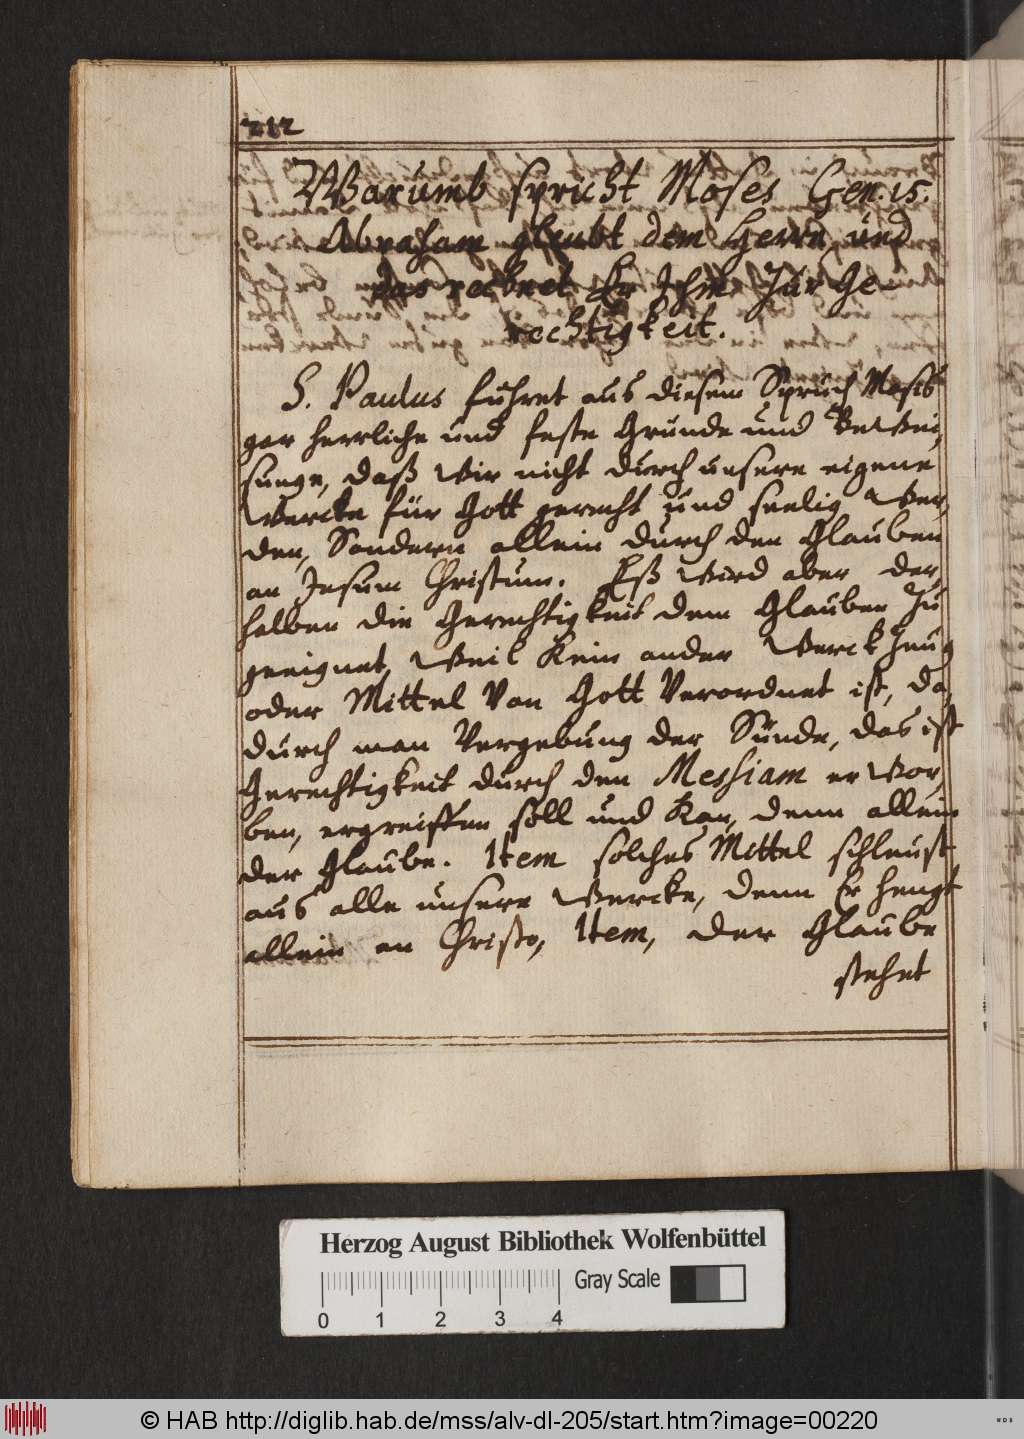 212
Warumb spricht Moses Gen. 15.
Abraham gleubt dem Herrn, und
das rechnet Er Jhm Zur Ge
rechtigkeit.
S. Paulus führet aus diesem Spruch Mosis
gar herrliche und feste Gründe und BeWei,
sunge, daß Wir nicht durch unsere eigene
Wercke für Gott gerecht und seelig Wer,
den, Sondern allein durch den Glauben
an Jesum Christum. Eß Wird aber der,
halben die Gerechtigkeit dem Glauben Zu
geeignet, Weil Kein ander WerckZeug
oder Mittel Von Gott Verordnet ist, da,
durch man Vergebung der Sünde, das ist
Gerechtigkeit durch den Messiam erWor
ben, ergreiffen soll und Kan, denn allein
der Glaube. Item solches Mittel schleust
aus alle unsere Wercke, denn Er hengt
allein an Christo, Item, der Glaube
stehet
Herzog August Bibliothek Wolfenbüttel
Gray Scale
0 1 2 3 4
© HAB http://diglib.hab.de/mss/alv-dl-205/start.htm?image=00220